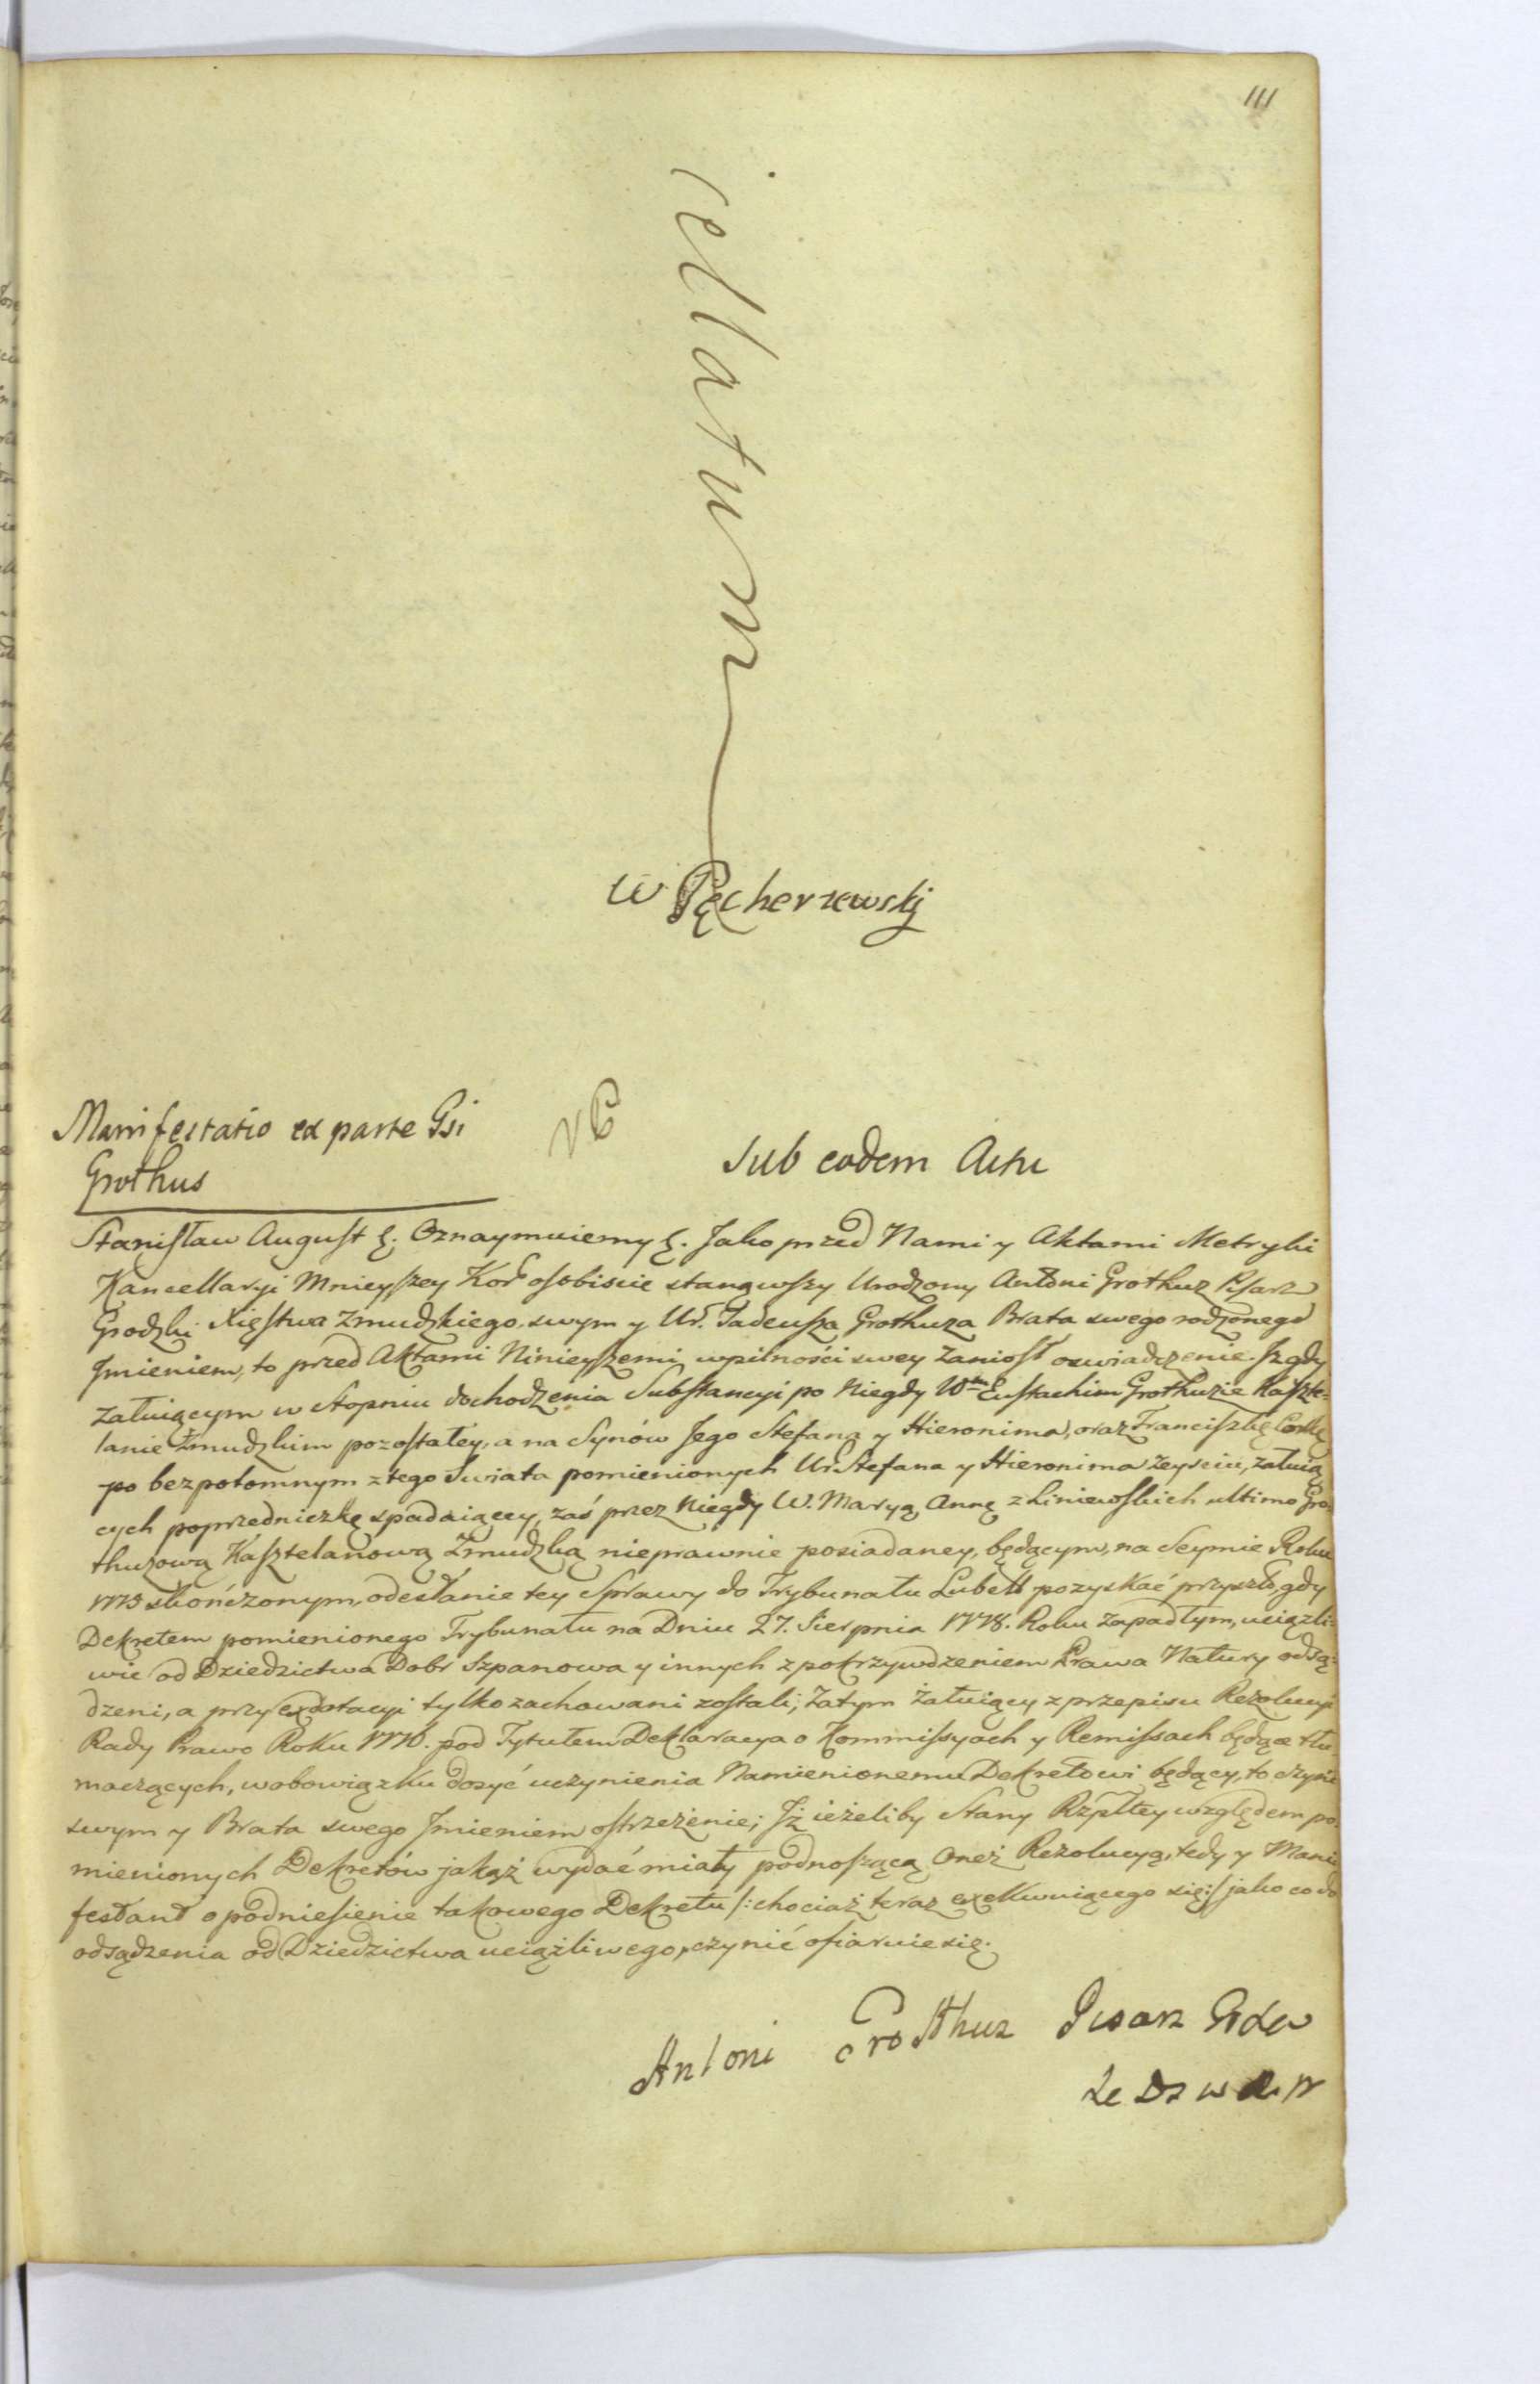 111
cellatum
W Pęcherzewskj
Manifestatio ex parte Gsi
Grothus
Sub eodem Actu
Stanisław August &. Oznaymuiemy &. Jako przed Nami y Aktami Metryki
Kancellaryi Mnieyszey Kor. osobiscie stanąwszy Urodzony Antoni Grothuz Pisarz
Grodzki Xięstwa Zmudzkiego, swym y Ur. Tadeusza Grothuza Brata swego rodzonego
Jmieniem, to przed Aktami Ninieyszemi wpilności swey Zaniosł oswiadczenie. Jz gdy
żałuiącym w stopniu dochodzenia Substancyi po Niegdy Wm Eustachim Grothuzie Kaszte-
lanie Zmudzkim pozostałey, a na Synów Jego Stefana y Hieronima, oraz Franciszkę Corkę
po bezpotomnym z tego Swiata pomienionych Ur Stefana y Hieronima Zeysciu, żałuią
cych poprzedniczkę spadaiącey, zaś przez Niegdy W. Maryą Annę z Liniewskich ultimo Gro
thuzową Kasztelanową Żmudzką nieprawnie posiadaney, będącym, na Seymie Roku
1775 skończonym, odesłanie tey Sprawy do Trybunału Lubelt pozyskać przyszło, gdy
Dekretem pomienionego Trybunału na Dniu 27. Sierpnia 1778. Roku Zapadłym, uciążli-
wie od Dziedzictwa Dobr Szpanowa y innych z pokrzywdzeniem Prawa Natury odsą-
dzeni, a przy exdotacyi tylko zachowani zostali; Zatym żałuiący z przepisu Rezolucyi
Rady Prawo Roku 1776. pod Tytułem Deklaracya o Kommissyach y Remissach będące tłu-
maczących, w obowiązku dosyć uczynienia Namienionemu Dekretowi będący, to czyni
swym y Brata swego Jmieniem ostrzeżenie; Jż ieżeliby Stany Rzpltey względem po-
mienionych Dekretów jakąż wydać miały podnoszącą Oneż Rezolucyą, tedy y Mani-
festant o podniesienie takowego Dekretu /: chociaż teraz exekwuiącego się :/ jako co do
odsądzenia od Dziedzictwa uciążliwego, czynić ofiaruie się.
Antoni Grothuz Pisarz